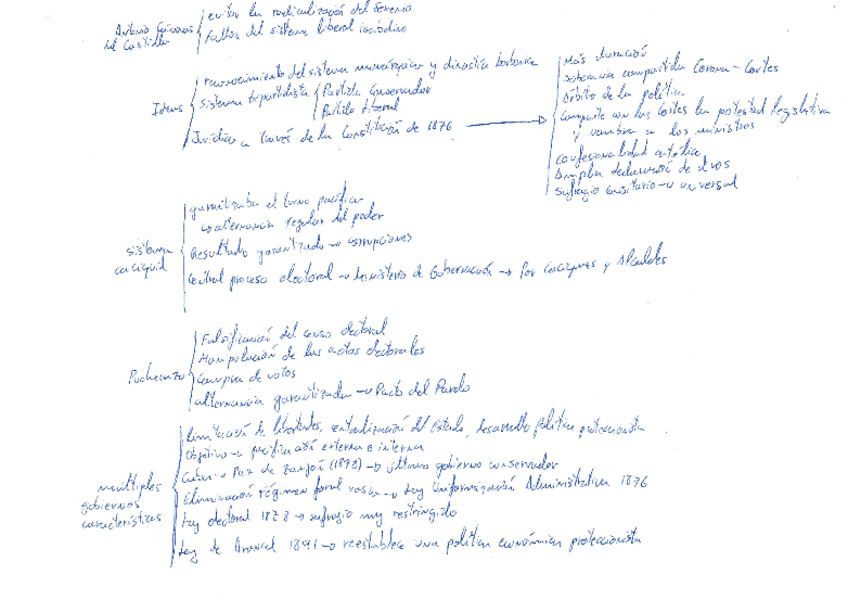 Antonio Cánovas del Castillo
evitar la radicalización del Sexenio
Fallos del sistema liberal isabelino
Ideas
reconocimiento del sistema monárquico y dinastía borbónica
Sistema bipartidista
Partido Conservador
Partido liberal
Jurídico a través de la Constitución de 1876
Más duración
Soberanía compartida Corona - Cortes
Árbitro de la política
comparte con las Cortes la potestad legislativa
y nombra a los ministros
confesionalidad católica
Amplia declaración de
Sufragio censitario → universal
Sistema caciquil
garantizaba el turno pacífico
alternancia regular del poder
Resultado garantizado → corrupciones
Control proceso electoral → Ministerio de Gobernación → Por Caciques y Alcaldes
Pucherazo
Falsificación del censo electoral
Manipulación de las actas electorales
Compra de votos
alternancia garantizada → Pacto del Pardo
múltiples gobiernos característicos
limitación de libertades, centralización del Estado, desarrollo política proteccionista
Objetivo → pacificación externa e interna
Paz de Zanjón (1898) → último gobierno conservador
Eliminación régimen foral vasco → Ley Uniformización Administrativa 1876
Ley electoral 1878 → sufragio muy restringido
Ley de Arancel 1891 → reestablece una política económica proteccionista